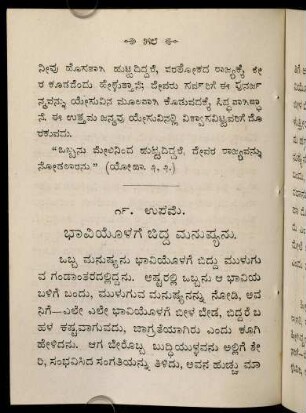 ೫೮
ನೀವು ಹೊಸದಾಗಿ ಹುಟ್ಟದಿದ್ದರೆ, ಪರಲೋಕದ ರಾಜ್ಯಕ್ಕೆ ಸೇರ
ಕೂಡದೆಂದು ಹೇಳುತ್ತಾನೆ. ದೇವರು ಸರ್ವರಿಗೆ ಈ ಪುನರ್ಜ
ನ್ಮವನ್ನು ಯೇಸುವಿನ ಮೂಲವಾಗಿ ಕೊಡುವದಕ್ಕೆ ಸಿದ್ಧವಾಗಿದ್ದಾ
ನೆ. ಈ ಉತ್ತಮ ಜನ್ಮವು ಯೇಸುವಿನಲ್ಲಿ ವಿಶ್ವಾಸವಿಟ್ಟವರಿಗೆ ದೊ
ರಕುವದು.
“ಒಬ್ಬನು ಮೇಲಿನಿಂದ ಹುಟ್ಟದಿದ್ದರೆ, ದೇವರ ರಾಜ್ಯವನ್ನು
ನೋಡಲಾರನು.” (ಯೋಹಾ. ೩, ೩.)
೧೯. ಉಪಮೆ.
ಭಾವಿಯೊಳಗೆ ಬಿದ್ದ ಮನುಷ್ಯನು.
ಒಬ್ಬ ಮನುಷ್ಯನು ಭಾವಿಯೊಳಗೆ ಬಿದ್ದು ಮುಳುಗು
ವ ಗಂಡಾಂತರದಲ್ಲಿದ್ದನು. ಅಷ್ಟರಲ್ಲಿ ಒಬ್ಬನು ಆ ಭಾವಿಯ
ಬಳಿಗೆ ಬಂದು, ಮುಳುಗುವ ಮನುಷ್ಯನನ್ನು ನೋಡಿ, ಅವ
ನಿಗೆ—ಎಲೇ ಎಲೇ ಭಾವಿಯೊಳಗೆ ಬೀಳ ಬೇಡ, ಬಿದ್ದರೆ ಬ
ಹಳ ಕಷ್ಟವಾಗುವದು, ಜಾಗ್ರತೆಯಾಗಿರು ಎಂದು ಕೂಗಿ
ಹೇಳಿದನು. ಆಗ ಬೇರೊಬ್ಬ ಬುದ್ಧಿಯುಳ್ಳವನು ಅಲ್ಲಿಗೆ ಸೇ
ರಿ, ಸಂಭವಿಸಿದ ಸಂಗತಿಯನ್ನು ತಿಳಿದು, ಅವನ ಹುಚ್ಚು ಮಾ